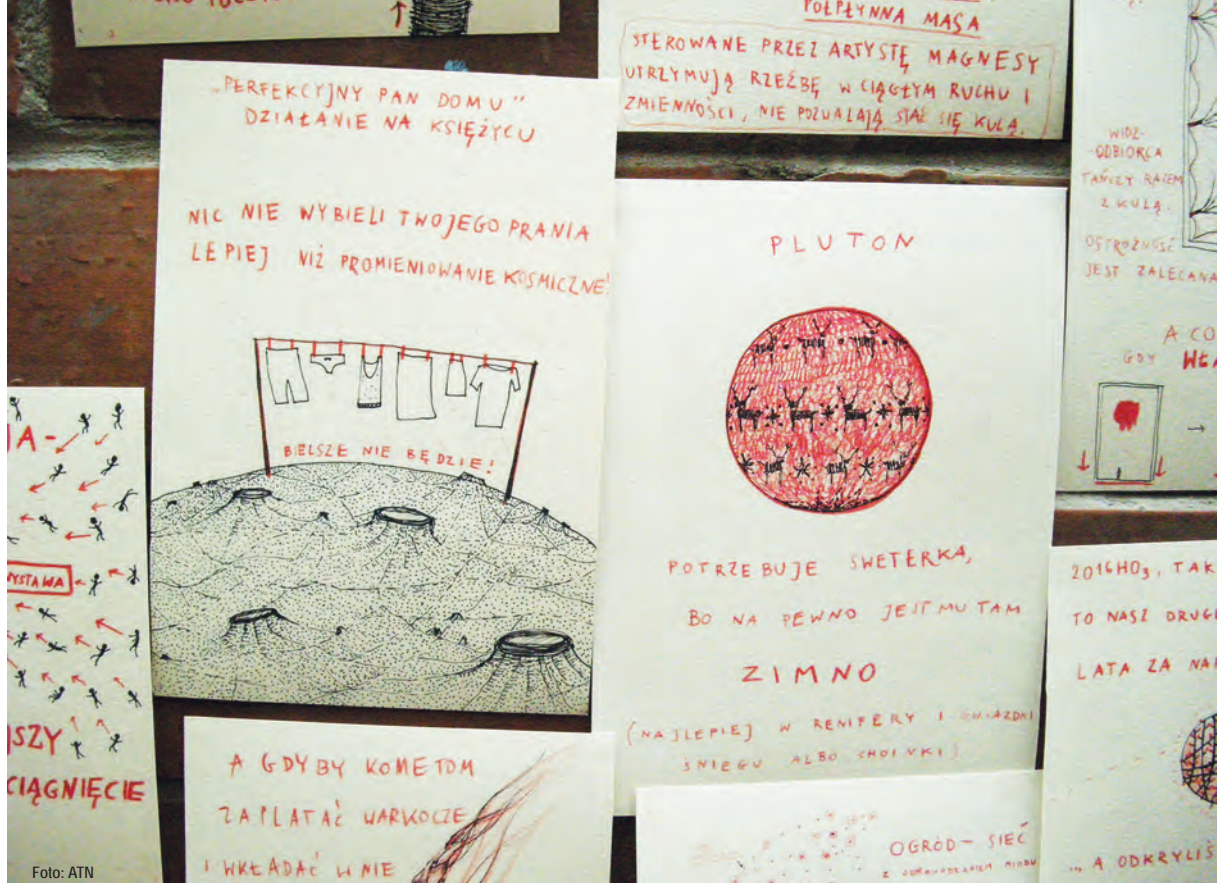 PÓŁPŁYNNA MASA
STEROWANE PRZEZ ARTYSTĘ MAGNESY
UTRZYMUJĄ RZEŹBĘ W CIĄGŁYM RUCHU I
ZMIENNOŚCI, NIE POZWALAJĄ STAĆ SIĘ KULĄ.
„PERFEKCYJNY PAN DOMU”
DZIAŁANIE NA KSIĘŻYCU
NIC NIE WYBIELI TWOJEGO PRANIA
LEPIEJ NIŻ PROMIENIOWANIE KOSMICZNE!
BIELSZE NIE BĘDZIE!
PLUTON
POTRZEBUJE SWETERKA,
BO NA PEWNO JEST MU TAM
ZIMNO
(NAJLEPIEJ W RENIFERY I GWIAZDKI
ŚNIEGU ALBO CHOINKI)
WIDZ-
-ODBIORCA
TAŃCZY RAZEM
Z KULĄ.
OSTROŻNOŚĆ
JEST ZALECANA
A CO
GDY WŁA
JA-
WYSTAWA
JSZY
CIĄGNIĘCIE
A GDYBY KOMETOM
ZAPLATAĆ WARKOCZE
I WKŁADAĆ W NIE
OGRÓD – SIEĆ
Z MIODU
2016HO3, TAK
TO NASZ DRUGI
LATA ZA NAM
... A ODKRYLIŚ
Foto: ATN